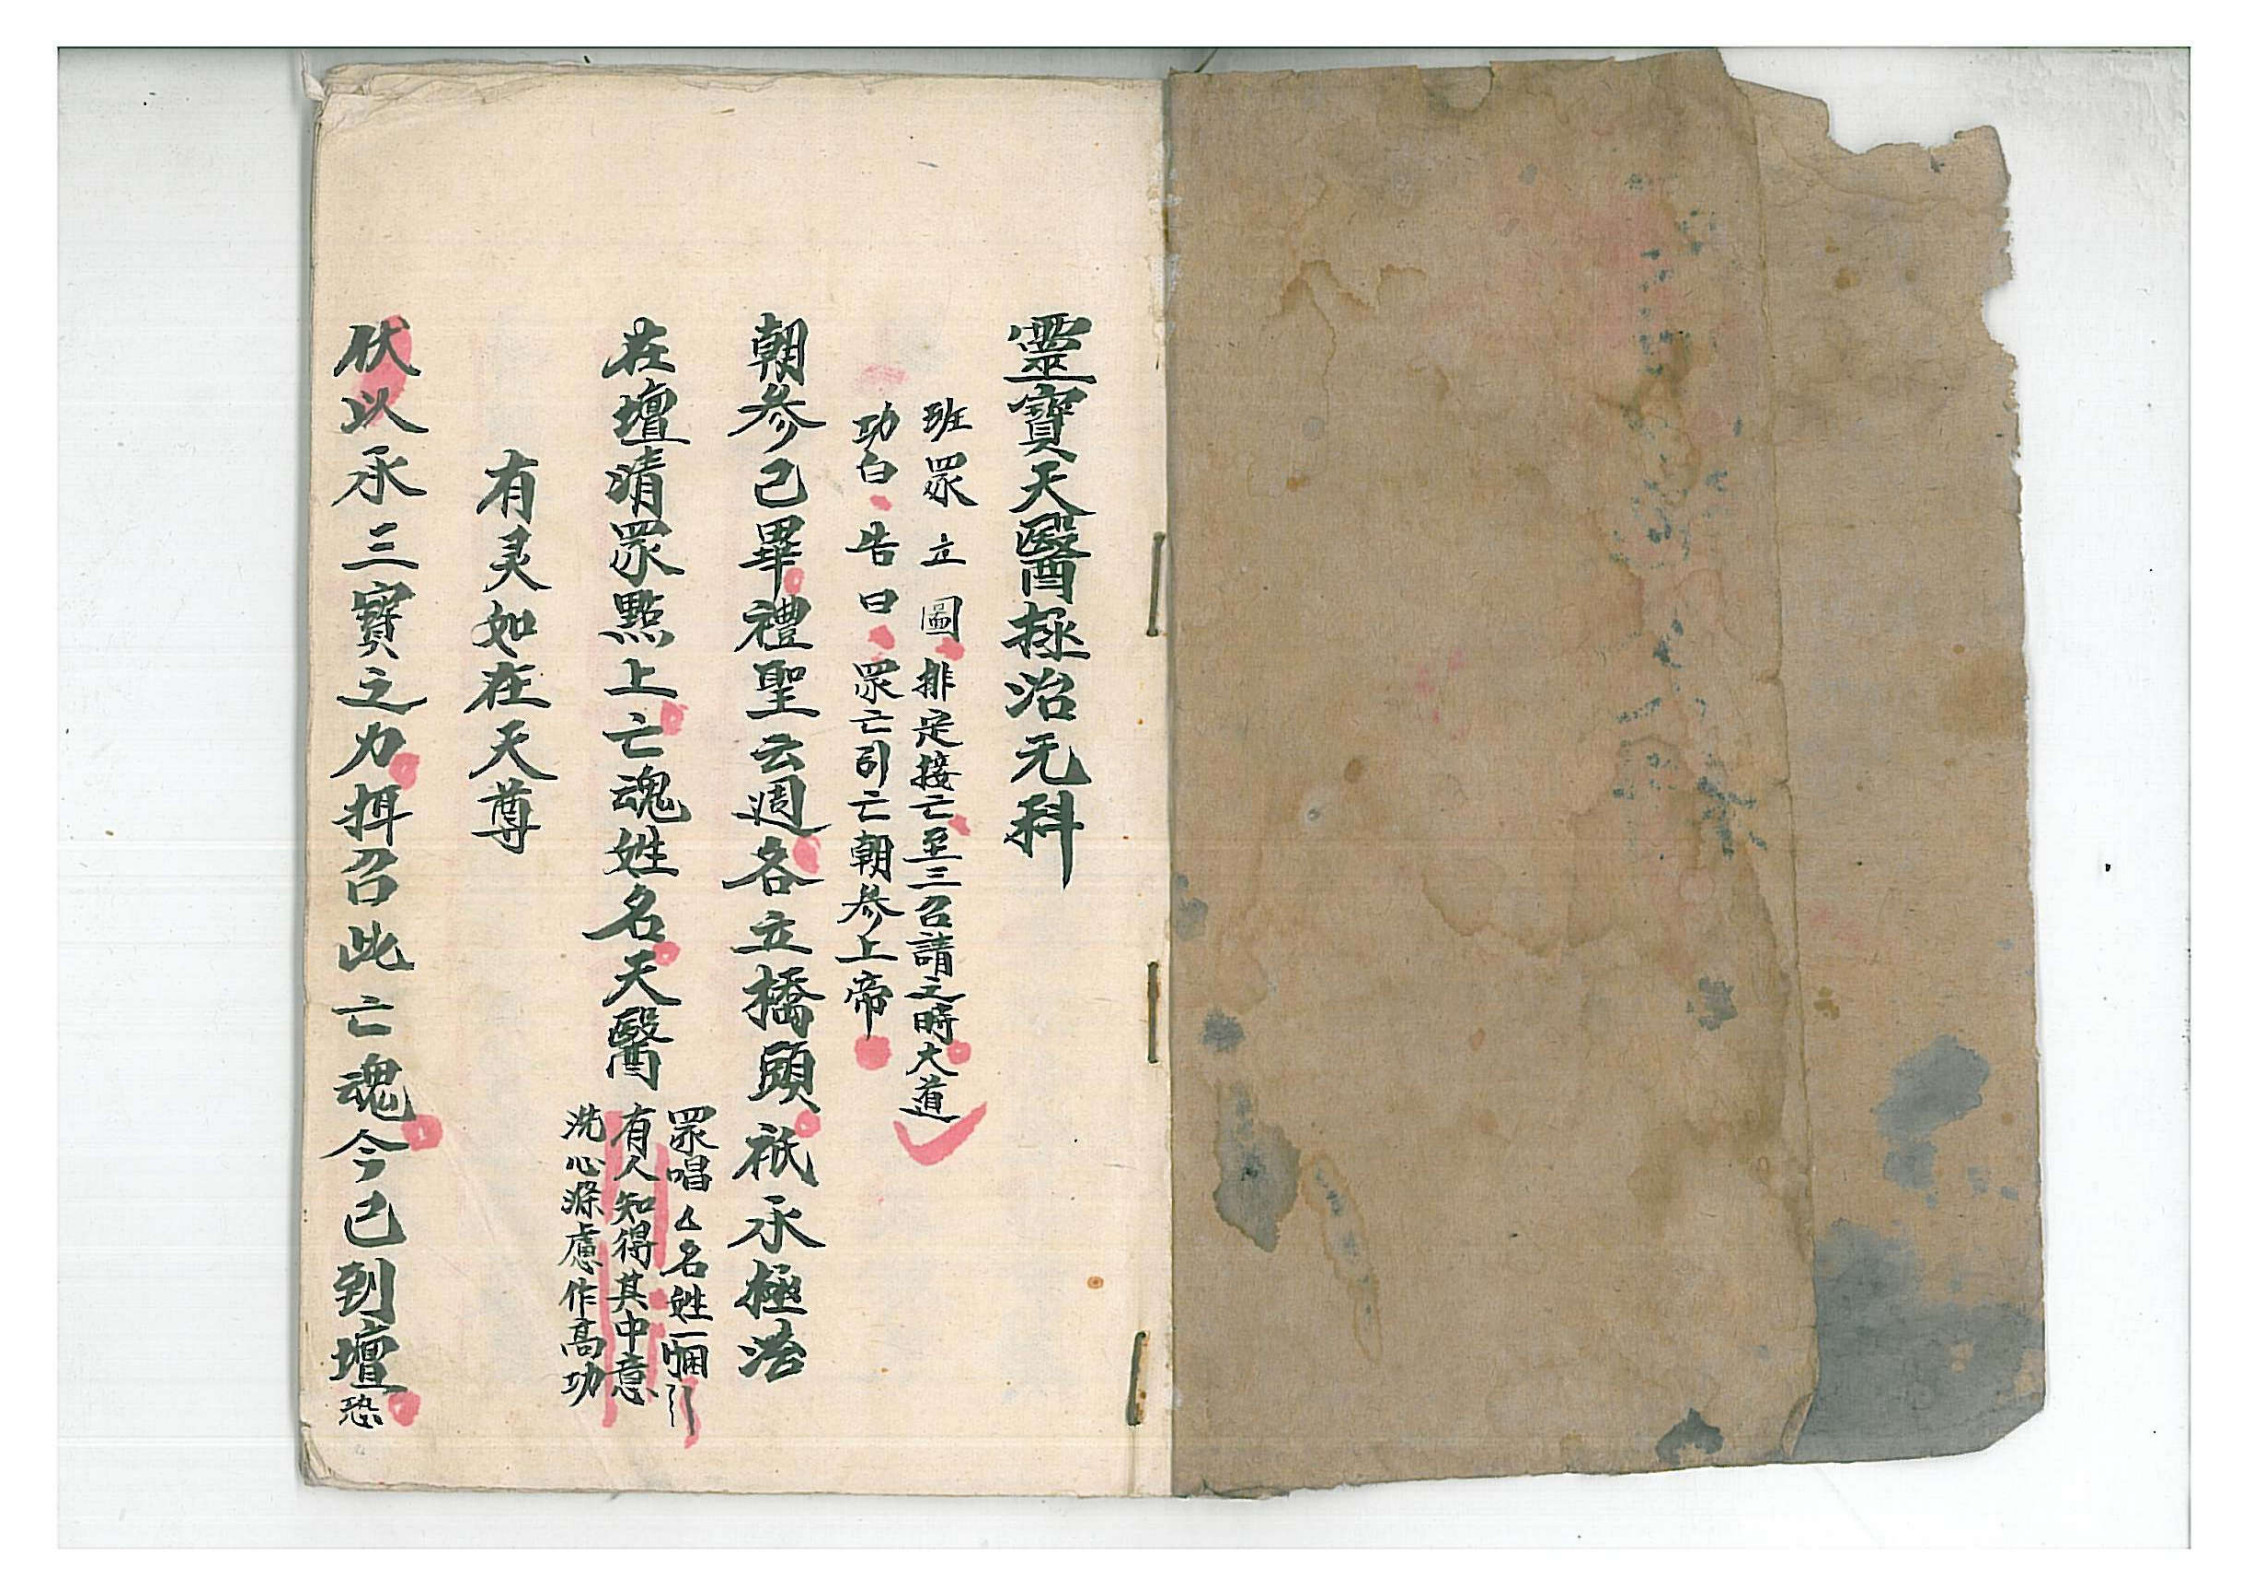 靈寳天醫拯治元科
班眾立圖排定接亡至三召請之時大道
功白告曰眾亡引亡朝參上帝
朝參已畢禮聖云週各立橋頭祇承極法
在壇清眾點上亡魂姓名天醫
眾唱厶名姓一
有人知得其中意
洗心滌慮作高功
有灵如在天尊
伏以承三寳之力拜召此亡魂今已到壇恐